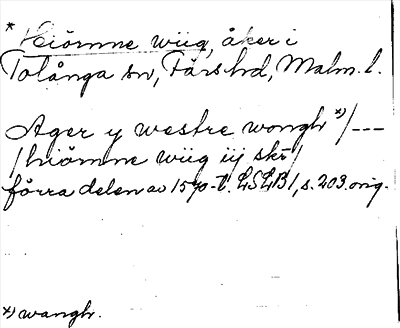 * Hiömne wiig, åker i
Tolånga sn, Färs hd, Malm. l.
Ager y westre wongh *)/---
/hiömne wiig iij skr/
förra delen av 1570-t. LSLB 1, s. 203. orig.
*) wangh.